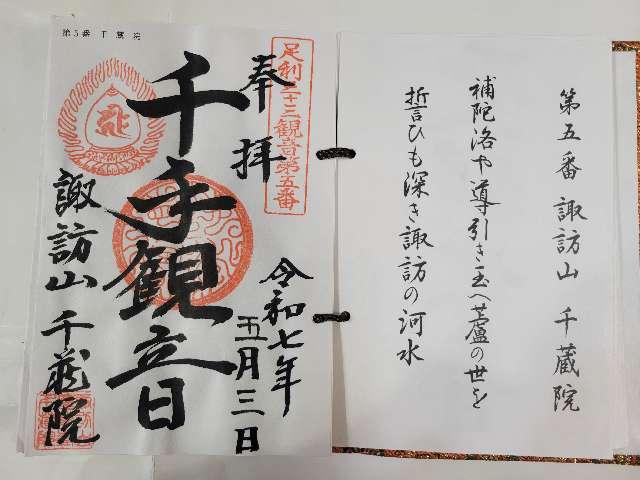 第五番 諏訪山 千蔵院
補陀洛や導引き玉へ蘆の世を
誓ひも深き諏訪の河水
第5番 千蔵院
足利三十三観音第五番
奉拝
令和七年
五月三日
千手観音
諏訪山 千蔵院